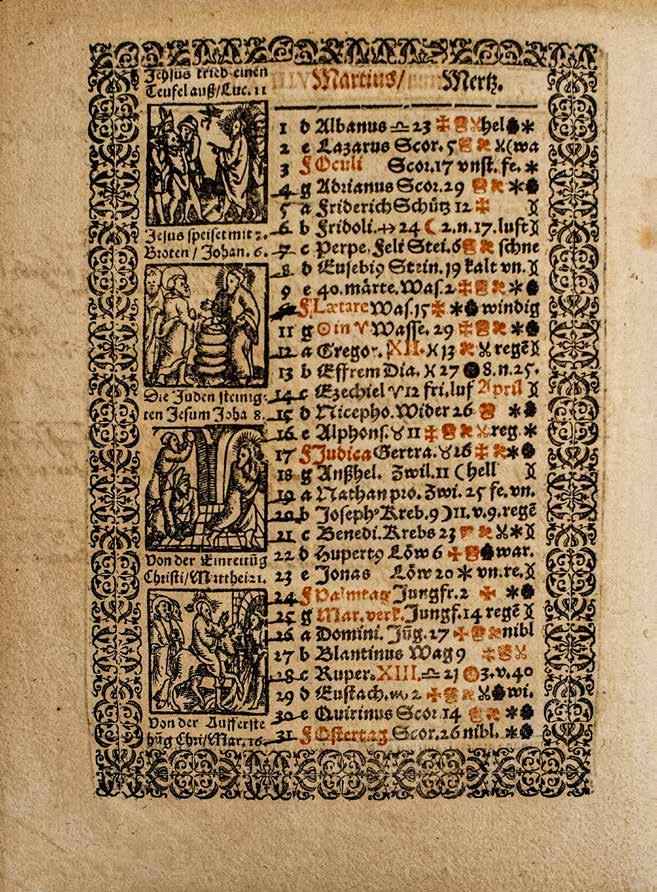 Jehsus trieb einen
Teufel auß/Luc. 11
Jesus speiset mit 5.
Broten / Johan. 6.
Die Juden steinig-
ten Jesum Joha 8.
Von der Einreitũg
Christi/Matthei 21.
Von der Aufferste
hũg Chri/Mar. 16.
Martius/ Mertz.
1 d Albanus ♎ 23 hel
2 e Lazarus Scor. 5 (wa
3 f Oculi Scor. 17 vnst. fe.
4 g Adrianus Scor. 29
5 a Friderich Schütz 12
6 b Fridoli. ♐ 24 ☾ 2. n. 17. luft
7 c Perpe. Feli Stei. 6 schne
8 d Eusebi9 Stein. 19 kalt vn.
9 e 40. märte. Was. 2
f Lætare Was. 15 windig
11 g ☉ in ♈ Wasse. 29
12 a Gregor. XII. ♓ 13 regẽ
13 b Effrem Dia. ♓ 27 ● 8. n. 25.
14 c Ezechiel ♈ 12 fri. luf April
15 d Nicepho. Wider 26
16 e Alphons. ♉ 11 reg.
17 f Judica Gertra. ♉ 26
18 g Anßhel. Zwil. 11 (hell
19 a Nathan pro. Zwi. 25 fe. vn.
20 b Joseph9 Kreb. 9 ☽ 11. v. 9. regẽ
21 c Benedi. Krebs 23
22 d Hupert9 Löw 6 war.
23 e Jonas Löw 20 vn. re.
24 f Palmtag Jungfr. 2
25 g Mar. verk. Jungf. 14 regẽ
26 a Domini. Jũg. 27 nibl
27 b Blantinus Wag 9
28 c Ruper. XIII. ♎ 21 3. v. 40
29 d Eustach. ♏ 2 wi.
30 e Quirinus Scor 14
31 f Ostertag Scor. 26 nibl.